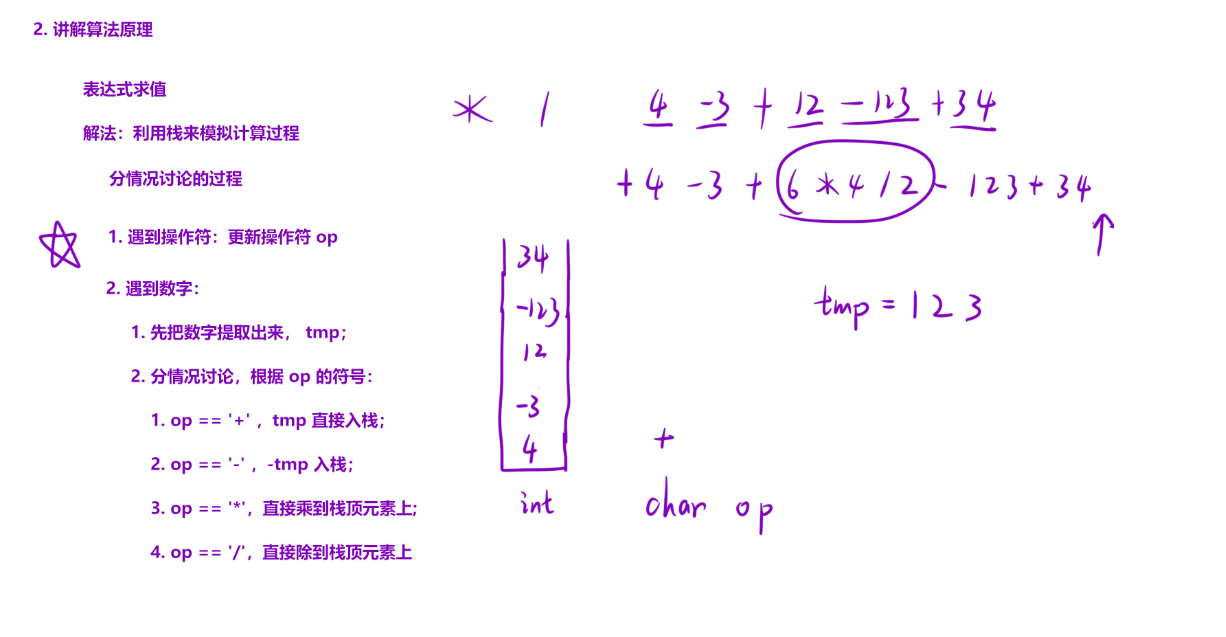 2. 讲解算法原理
表达式求值
解法：利用栈来模拟计算过程
分情况讨论的过程
1. 遇到操作符：更新操作符 op
2. 遇到数字：
1. 先把数字提取出来， tmp；
2. 分情况讨论，根据 op 的符号：
1. op == '+' ，tmp 直接入栈；
2. op == '-' ，-tmp 入栈；
3. op == '*'，直接乘到栈顶元素上;
4. op == '/'，直接除到栈顶元素上
* /
4 -3 + 12 -123 +34
+4 -3 + 6 * 4 / 2 - 123 + 34
tmp = 123
34
-123
12
-3
4
int
+
char op